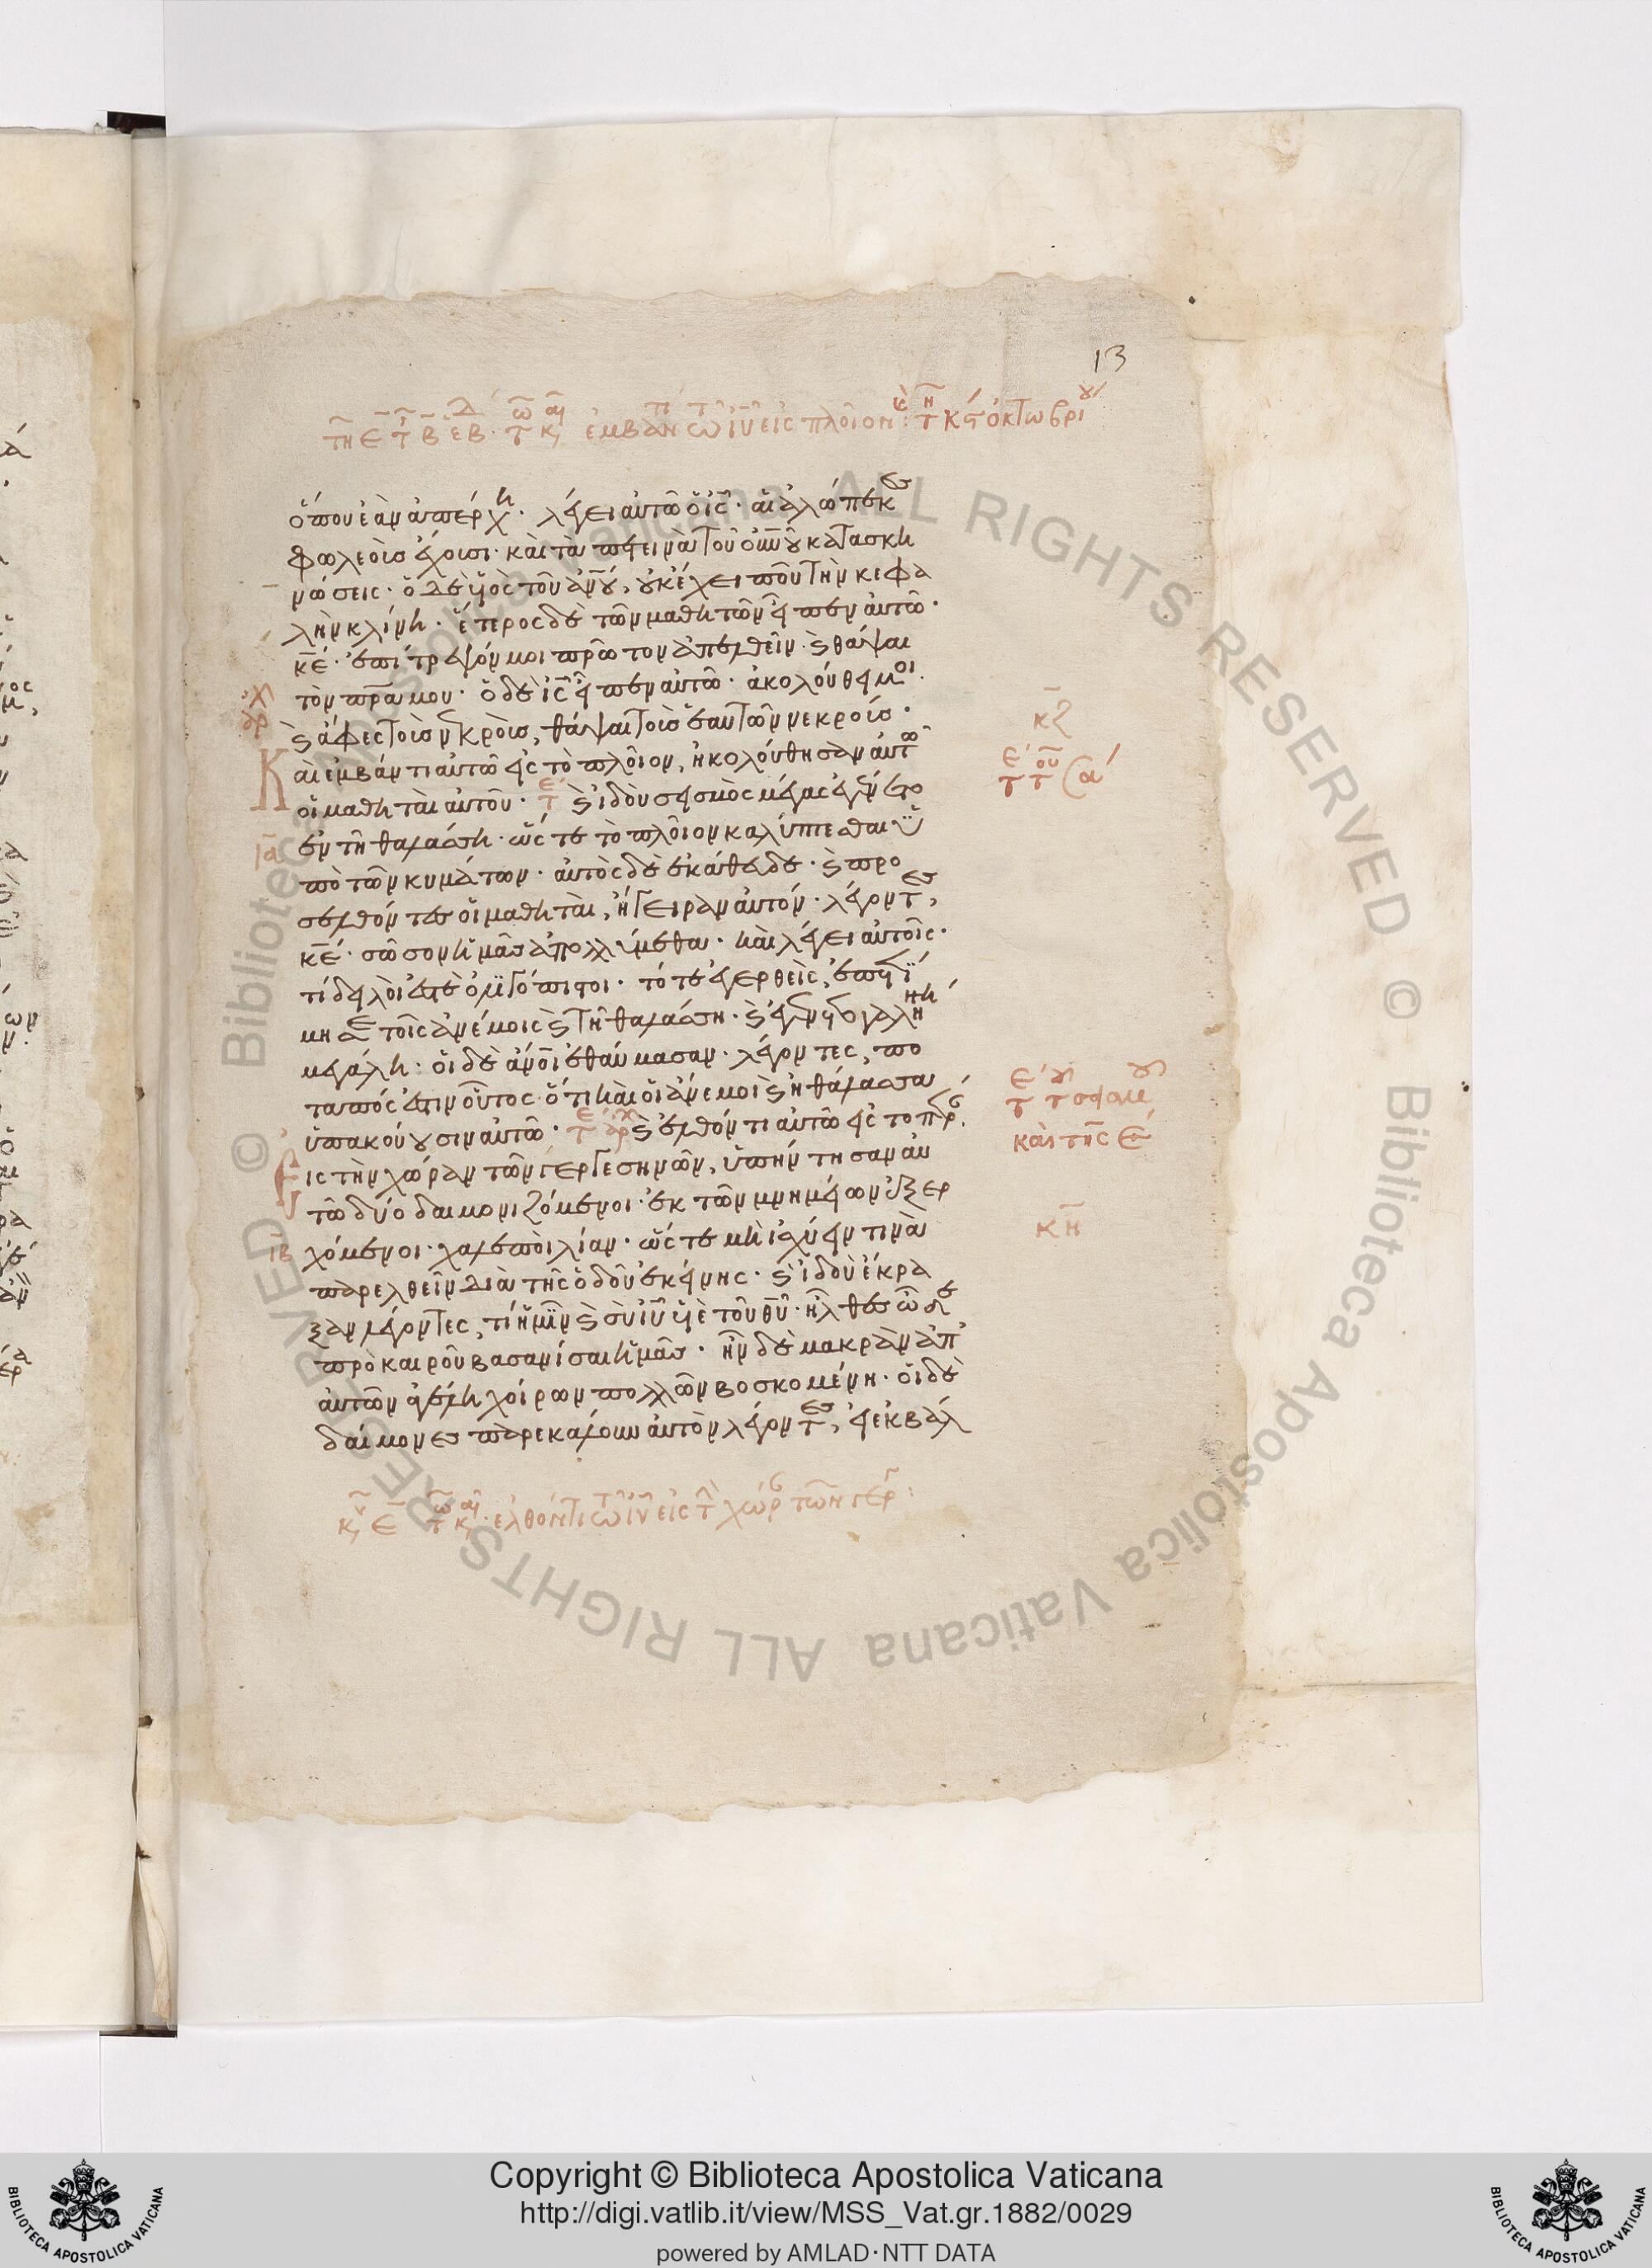 13
τῆ ε τ β ἑβ. τ κ, ἐμβάντι τῶ ἰῦ εἰς πλοῖον: τ κϛ ὀκτωβρίου
ὅπου ἐὰν ἀπέρχη. λέγει αὐτῶ ὁ ἰς̄. αἱ ἀλώπεκες
φωλεοὺς ἔχουσι. καὶ τὰ πετεινὰ τοῦ οὐνοῦ κατασκη
νώσεις. ὁ δὲ υἱὸς τοῦ ἀνου, οὐκ ἔχει ποῦ τὴν κεφα
λὴν κλίνη. ἕτερος δὲ τῶν μαθητῶν εἶπεν αὐτῶ.
κέ. ἐπίτρεψόν μοι πρῶτον ἀπελθεῖν ϗ θάψαι
τὸν πρα μου. ὁ δὲ ἰς̄ εἶπεν αὐτῶ. ἀκολούθει μοι.
ϗ ἄφες τοὺς νεκροὺς, θάψαι τοὺς ἑαυτῶν νεκρούς.
κζ
Καὶ ἐμβάντι αὐτῶ εἰς τὸ πλοῖον, ἠκολούθησαν αὐτῶ
οἱ μαθηταὶ αὐτοῦ. ϗ ἰδοὺ σεισμὸς μέγας ἐγένετο
ἐν τῆ θαλάσση. ὥστε τὸ πλοῖον καλύπτεσθαι ὑ
ια
πὸ τῶν κυμάτων. αὐτὸς δὲ ἐκάθευδε. ϗ προ
σελθόντες οἱ μαθηταὶ, ἤγειραν αὐτόν. λέγοντες,
κέ. σῶσον ἡμᾶς ἀπολλύμεθα. καὶ λέγει αὐτοῖς.
τί δειλοί ἐστὲ ὀλιγόπιστοι. τότε ἐγερθεὶς, ἐπετί
μησε τοῖς ἀνέμοις ϗ τῆ θαλάσση. ϗ ἐγένετο γαλήνη
μεγάλη: οἱ δὲ ἀνοι ἐθαύμασαν. λέγοντες, πο
ταπός ἐστιν οὗτος. ὅτι καὶ οἱ ἄνεμοι ϗ ἡ θάλασσα
ὑπακούουσιν αὐτῶ. ϗ ἐλθόντι αὐτῶ εἰς τὸ πέρα.
καὶ τῆς ε
Εἰς τὴν χώραν τῶν γεργεσηνῶν, ὑπήντησαν αὐ
τῶ δύο δαιμονιζόμενοι. ἐκ τῶν μνημείων ἐξερ
ιβ
χόμενοι. χαλεποὶ λίαν. ὥστε μὴ ἰσχύειν τινὰ
κη
παρελθεῖν διὰ τῆς ὁδοῦ ἐκείνης. ϗ ἰδοὺ ἔκρα
ξαν λέγοντες, τί ἡμῖν ϗ σὺ ἰῦ υἱὲ τοῦ θῦ. ἦλθες ὧδε
πρὸ καιροῦ βασανίσαι ἡμᾶς. ἦν δὲ μακρὰν ἀπ'
αὐτῶν ἀγέλη χοίρων πολλῶν βοσκομένη. οἱ δὲ
δαίμονες παρεκάλουν αὐτὸν λέγοντες, εἰ ἐκβάλ
κυ ε τ κ,. ἐλθόντι τῶ ἰῦ εἰς τ χώρ τῶν γερ:
© Biblioteca Apostolica Vaticana ALL RIGHTS RESERVED © Biblioteca Apostolica Vaticana ALL RIGHTS RESERVED
BIBLIOTECA APOSTOLICA VATICANA
Copyright © Biblioteca Apostolica Vaticana
http://digi.vatlib.it/view/MSS_Vat.gr.1882/0029
powered by AMLAD·NTT DATA
BIBLIOTECA APOSTOLICA VATICANA